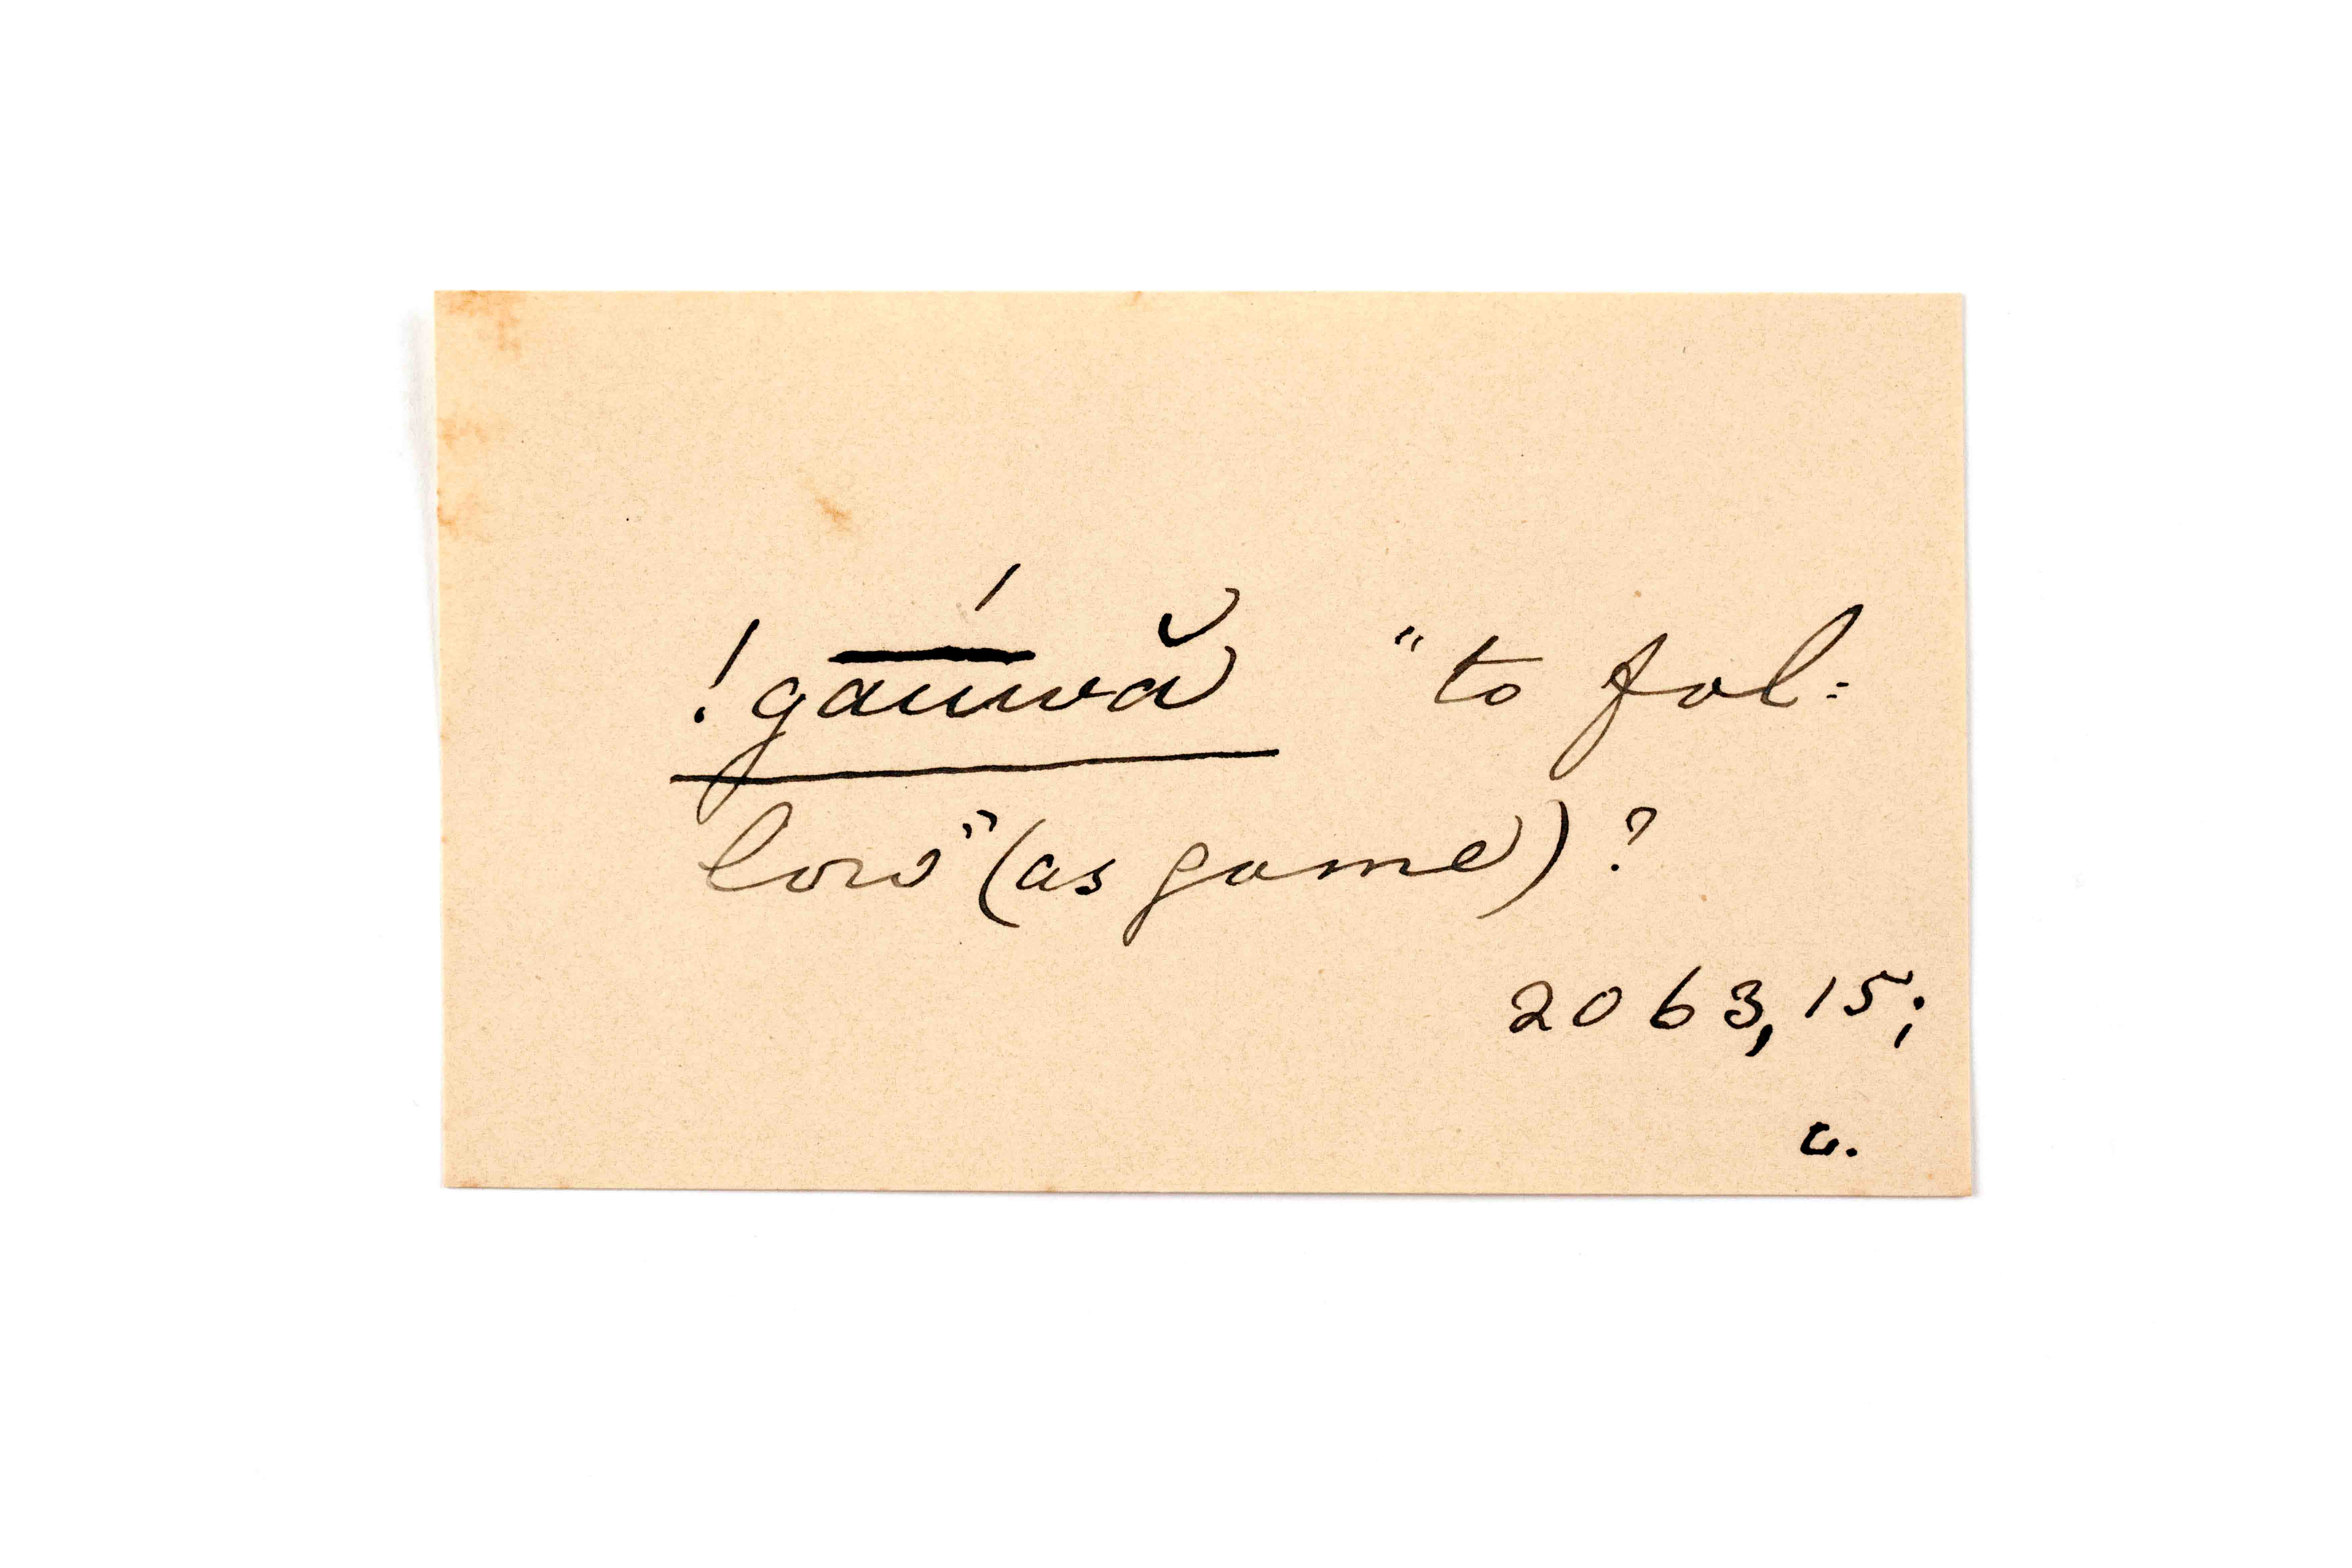 !gā́ūwă "to fol=
low" (as game)?
2063, 15;